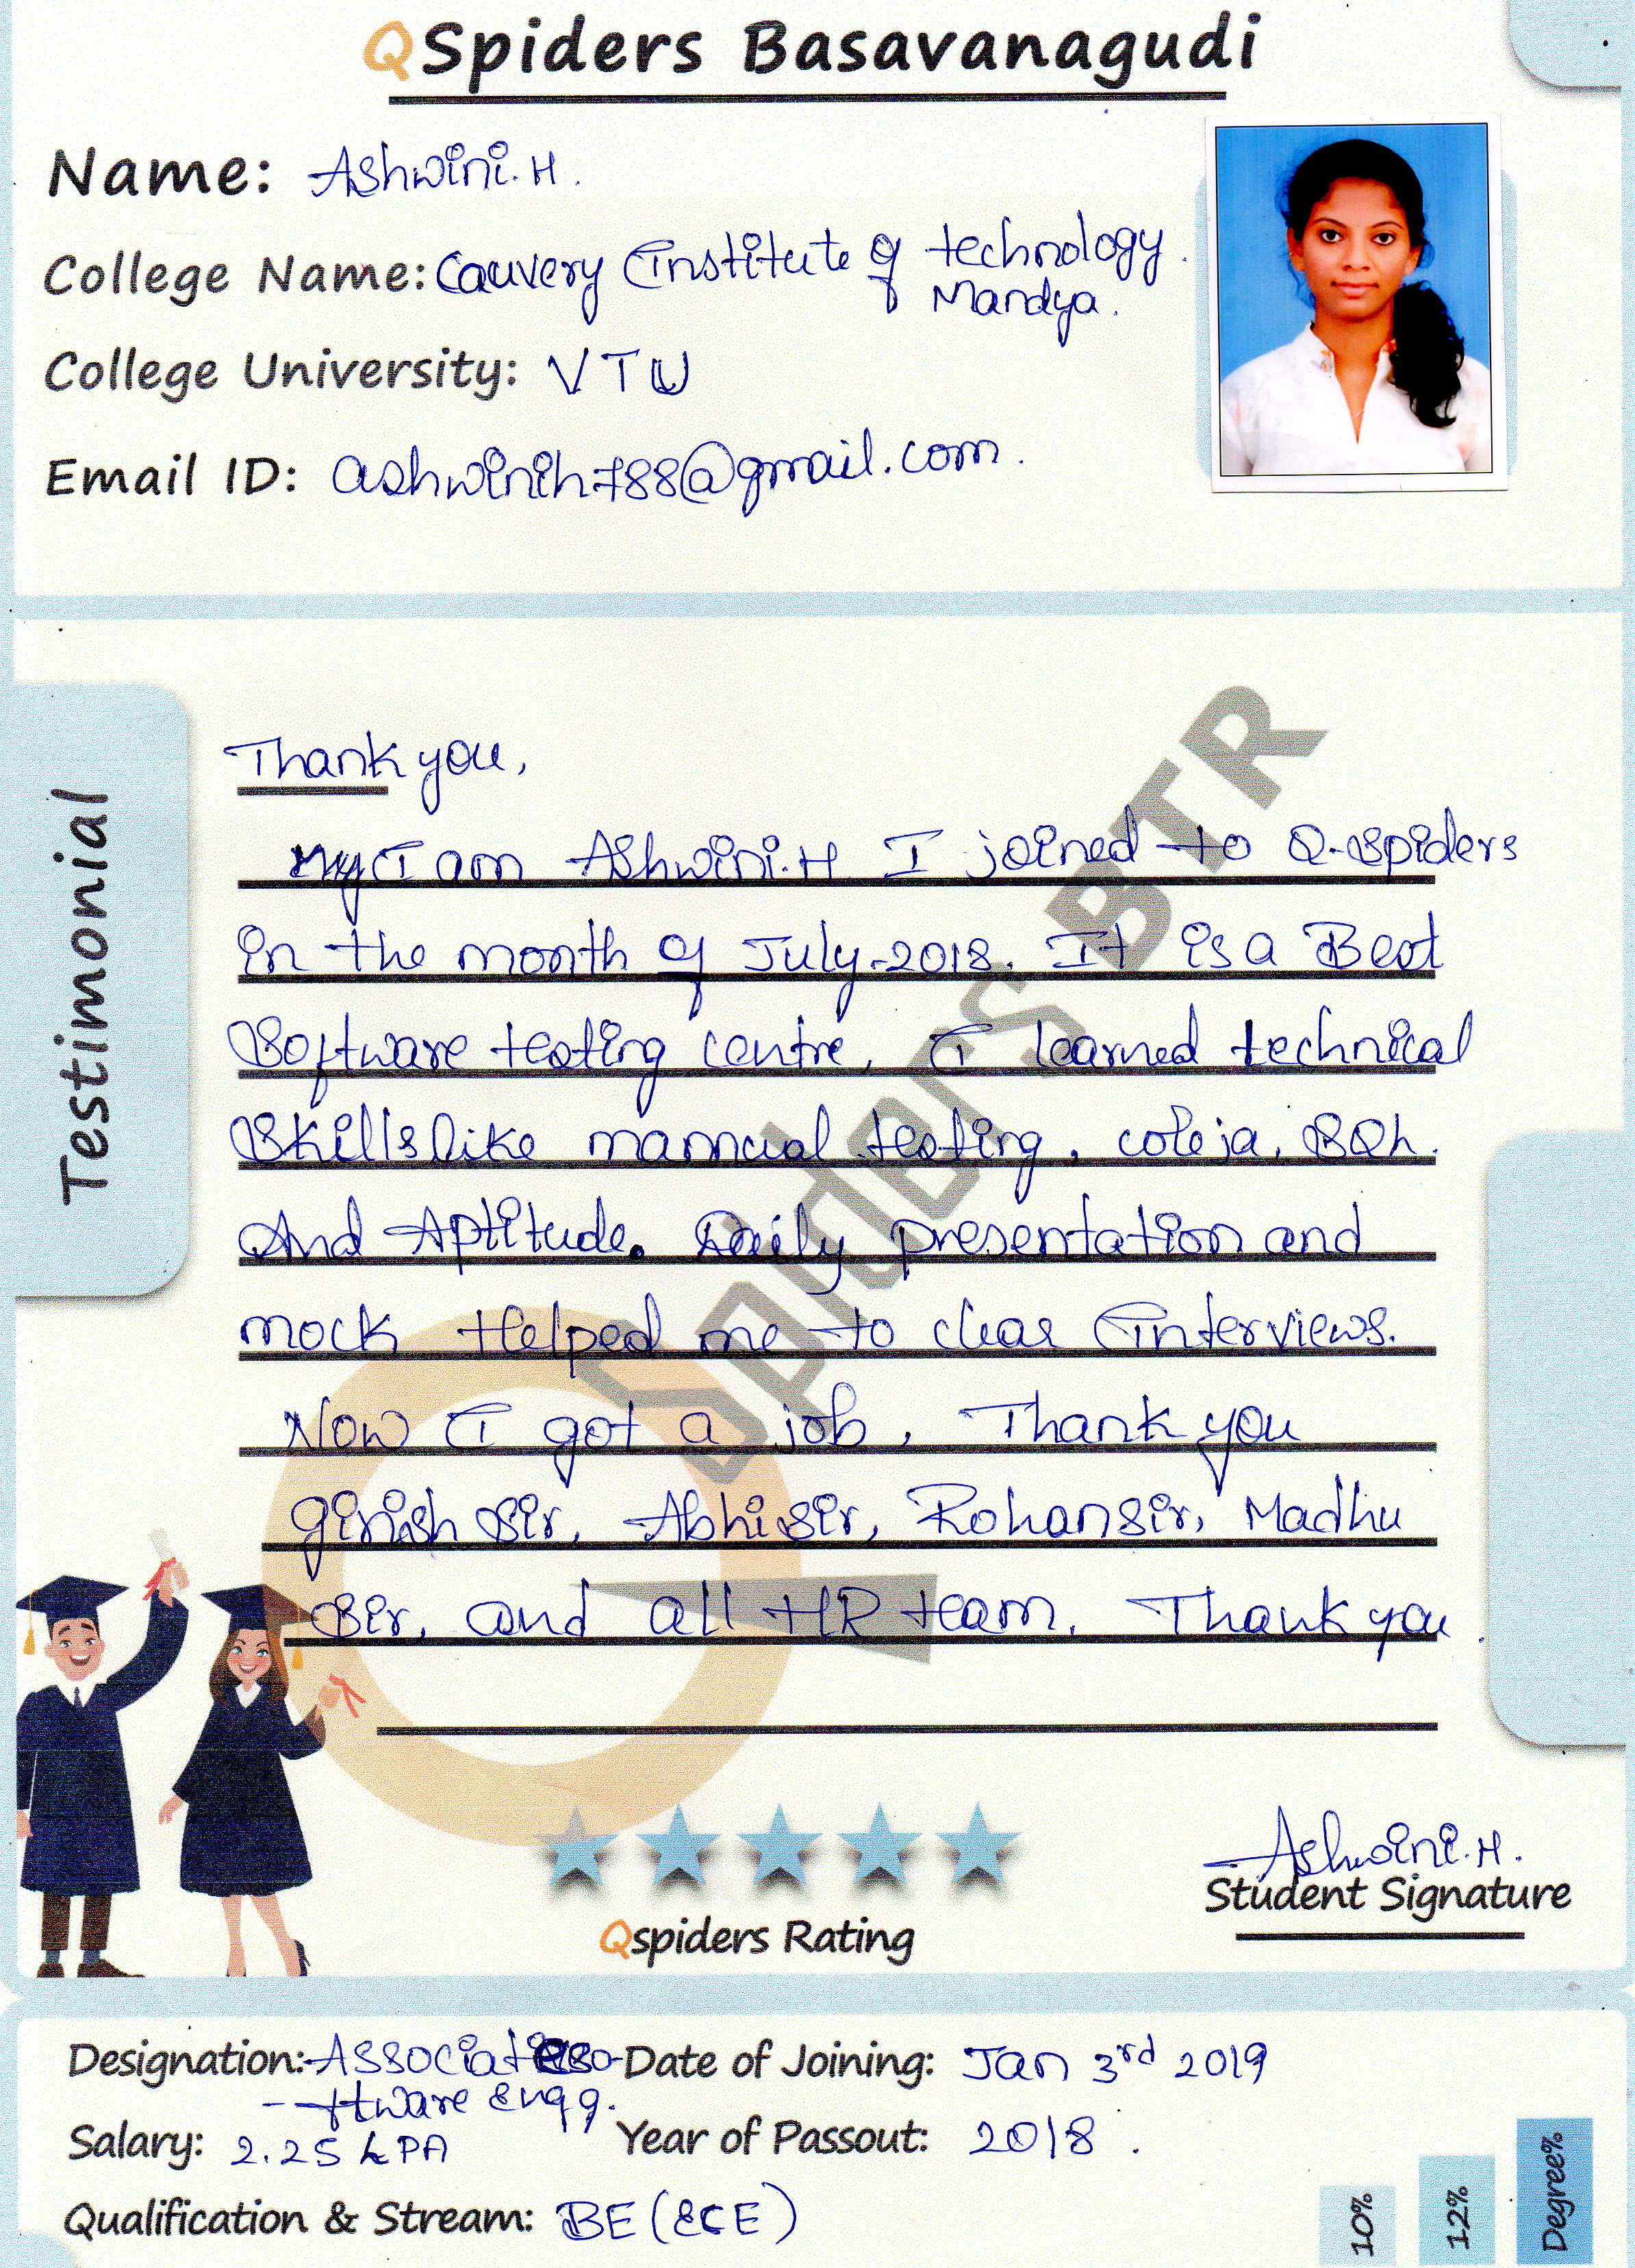 QSpiders Basavanagudi
Name: Ashwini.H.
College Name: Cauvery Institute of technology.
Mandya.
College University: VTU
Email ID: ashwinih788@gmail.com.
Testimonial
Thank you,
I am Ashwini.H I joined to Q-spiders
in the month of July-2018. It is a Best
Software testing centre, I learned technical
Skills like mannual testing, coreja, SQL.
And Aptitude. Daily presentation and
mock Helped me to clear Interviews.
Now I got a job, Thank you
girish sir, Abhi sir, Rohan sir, Madhu
Sir, and all HR team. Thank you.
Spiders BTR
Qspiders Rating
Ashwini.H.
Student Signature
Designation: Associate so- Date of Joining: Jan 3rd 2019
-ftware Engg.
Salary: 2.25 LPA Year of Passout: 2018.
Qualification & Stream: BE (ECE)
10% 12% Degree%